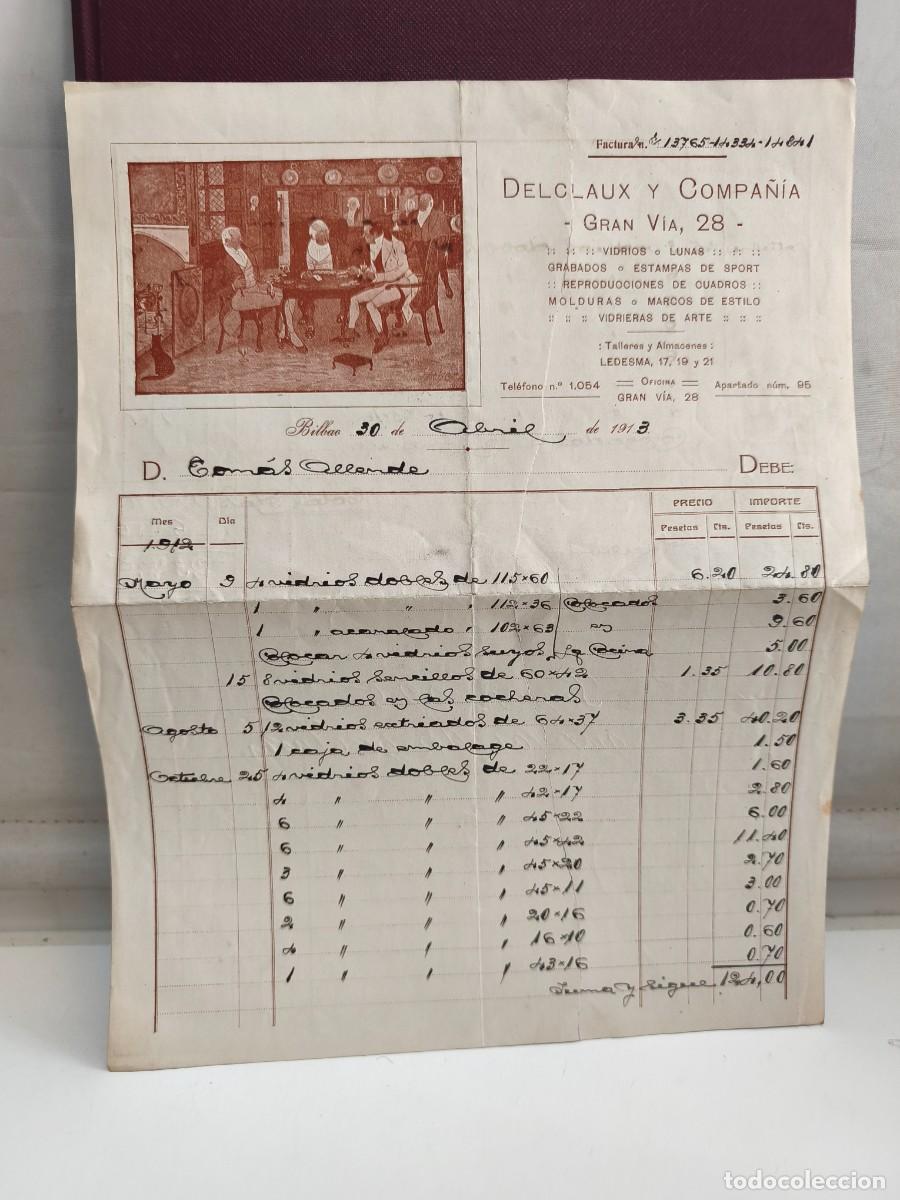 Facturas nº 13765-14334-14841
DELCLAUX Y COMPAÑÍA
- GRAN VÍA, 28 -
:: :: :: VIDRIOS o LUNAS :: :: ::
GRABADOS o ESTAMPAS DE SPORT
:: REPRODUCCIONES DE CUADROS ::
MOLDURAS o MARCOS DE ESTILO
:: :: :: VIDRIERAS DE ARTE :: :: ::
: Talleres y Almacenes :
LEDESMA, 17, 19 y 21
Teléfono n.º 1.054 OFICINA GRAN VÍA, 28 Apartado núm. 95
Bilbao 30 de Abril de 1913
D. Tomás Allende DEBE:
PRECIO IMPORTE
Mes Día Pesetas Cts. Pesetas Cts.
1912
Mayo 9 4 vidrios dobles de 115×60 6.20 24.80
1 " " " 112×36 Colocados 3.60
1 " acanalado " 102×63 9.60
Colocar 4 vidrios suyos 5.00
15 8 vidrios sencillos de 60×42 1.35 10.80
Colocados en las cocheras
Agosto 5 12 vidrios estriados de 64×37 3.35 40.20
1 caja de embalage 1.50
Octubre 25 4 vidrios dobles de 22×17 1.60
4 " " " 42×17 2.80
6 " " " 45×22 6.00
6 " " " 45×42 11.40
3 " " " 45×20 2.70
6 " " " 45×11 3.00
2 " " " 20×16 0.70
4 " " " 16×10 0.60
1 " " " 43×16 0.70
Suma y sigue 124,00
todocoleccion